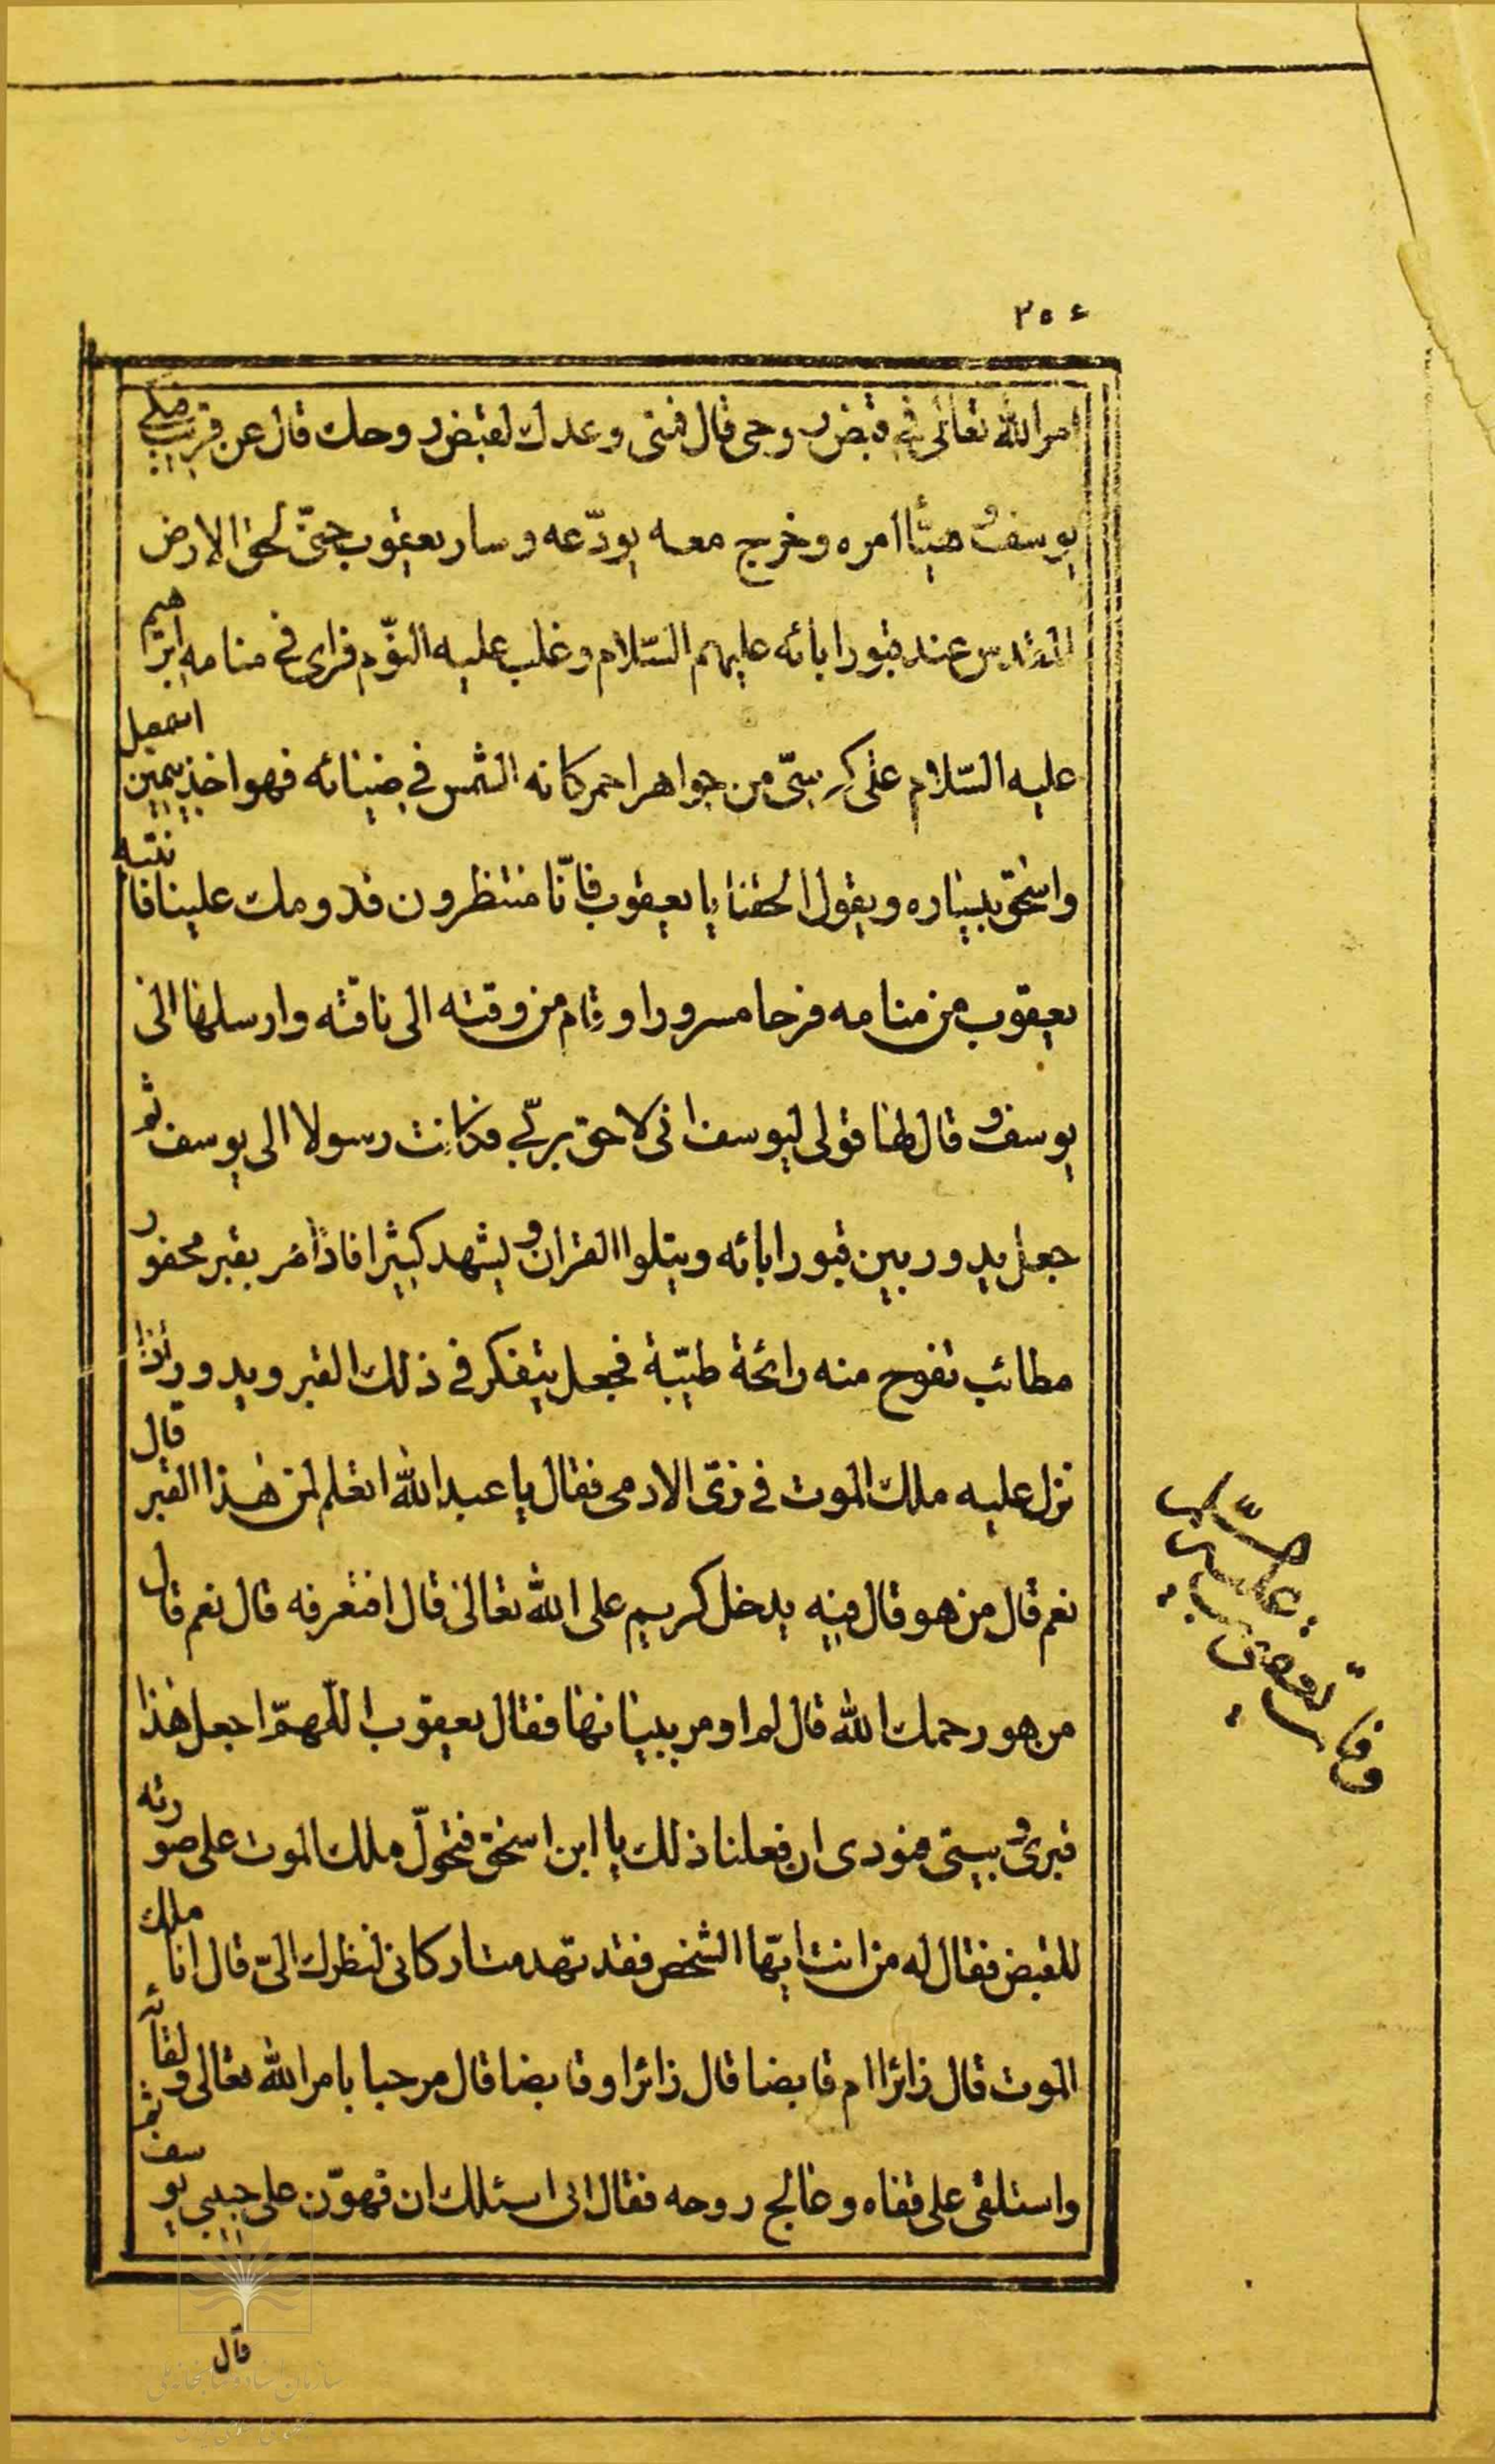 ۳۵۴
امر الله تعالى في قبض روحى قال فمتى وعدك لقبض روحك قال عن قريب
يوسف و هيّأ امره وخرج معه يودّعه وسار يعقوب حتّى لحق الارض
المقدس عند قبور ابائه عليهم السّلام وغلب عليه النّوم فراى في منامه ابرهيم
عليه السّلام على كرسىّ من جواهر احمر كانه الشمس في ضيائه فهو اخذ بيمين اسمعيل
واسحق بيساره ويقول الحقنا يا يعقوب فانّا منتظرون قدومك علينا فانتبه
يعقوب من منامه فرحا مسرورا وقام من وقته الى ناقته وارسلها الى
يوسف و قال لها قولى ليوسف انى لاحق بربّى فكانت رسولا الى يوسف ثم
جعل يدور بين قبور ابائه ويتلوا القران و يشهد كثيرا فاذا مر بقبر محفور
مطائب تفوح منه رائحة طيّبة فجعل يتفكر في ذلك القبر ويدور اذا
نزل عليه ملك الموت في زىّ الادمى فقال يا عبد الله اتعلم لمن هذا القبر قال
نعم قال من هو قال فيه يدخل كريم على الله تعالى قال افتعرفه قال نعم قال
من هو رحمك الله قال لم اومر ببيانها فقال يعقوب اللّهمّ اجعل هذا
قبرى و بيتى فنودى ان فعلنا ذلك يا ابن اسحق فتحوّل ملك الموت على صورته
للقبض فقال له من انت ايّها الشخص فقد تهدمت اركانى لنظرك الىّ قال انا ملك
الموت قال زائرا ام قابضا قال زائرا وقابضا قال مرحبا بامر الله تعالى ولقائه ثم
واستلقى على قفاه وعالج روحه فقال انى اسئلك ان تهوّن على حبيبى يوسف
قال
وفات يعقوب